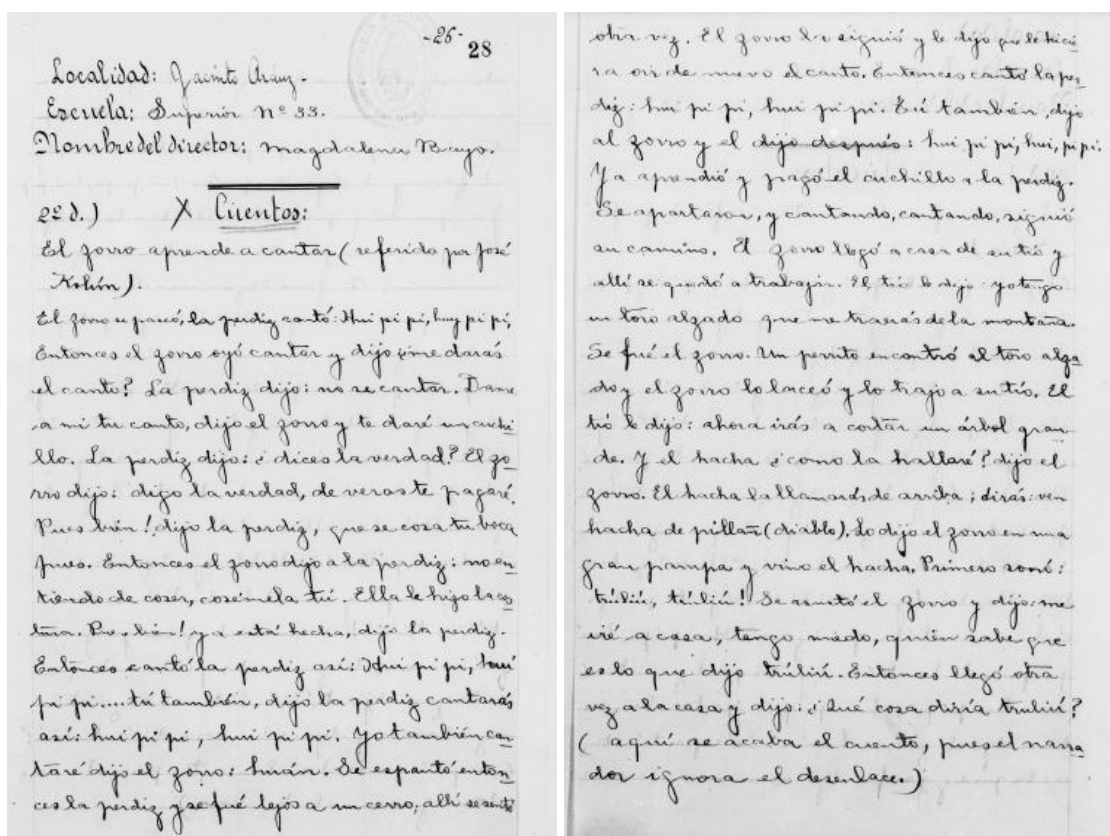 -26-
28
Localidad: Jacinto Aráuz.-
Escuela: Superior Nº 33.
Nombre del director: Magdalena Bayo.
2º d.) X Cuentos:
El zorro aprende a cantar (referido por José
).
El zorro se paseó, la perdiz cantó: Hui pi pi, huy pi pi,
Entonces el zorro oyó cantar y dijo ¿me darás
el canto? La perdiz dijo: no se cantar. Dame
a mi tu canto, dijo el zorro y te daré un cuchi
llo. La perdiz dijo: ¿dices la verdad? El zo
rro dijo: digo la verdad, de veras te pagaré.
Pues bién! dijo la perdiz, que se cosa tu boca
pues. Entonces el zorro dijo a la perdiz: no en
tiendo de coser, cosémela tú. Ella le hizo la cos
tura. Pues bién! ya está hecha, dijo la perdiz.
Entonces cantó la perdiz así: Hui pi pi, hui
pi pi.... tú también, dijo la perdiz cantarás
así: hui pi pi, hui pi pi. Yo también can
taré dijo el zorro: huán. Se espantó enton
ces la perdiz y se fué lejos a un cerro; allí se sentó
otra vez. El zorro la siguió y le dijo que le hicie
ra oir de nuevo el canto. Entonces cantó la per
diz: hui pi pi, hui pi pi. Tú también, dijo
al zorro y el dijo después: hui pi pi, hui, pi pi.
Ya aprendió y pagó el cuchillo a la perdiz.
Se apartaron, y cantando, cantando, siguió
su camino. El zorro llegó a casa de su tío y
allí se quedó a trabajar. El tío le dijo: yo tengo
un toro alzado que me traerás de la montaña.
Se fué el zorro. Un perrito encontró al toro alza
do y el zorro lo laceó y lo trajo a su tío. El
tío le dijo: ahora irás a cortar un árbol gran
de. Y el hacha ¿como la hallaré? dijo el
zorro. El hacha la llamarás de arriba; dirás: ven
hacha de pillañ (diablo). Lo dijo el zorro en una
gran pampa y vino el hacha. Primero sonó:
trúliú, trúliú! Se asustó el zorro y dijo: me
iré a casa, tengo miedo, quién sabe que
es lo que dijo trúliú. Entonces llegó otra
vez a la casa y dijo: ¿Qué cosa diría truliú?
(aquí se acaba el cuento, pues el narra
dor ignora el desenlace.)